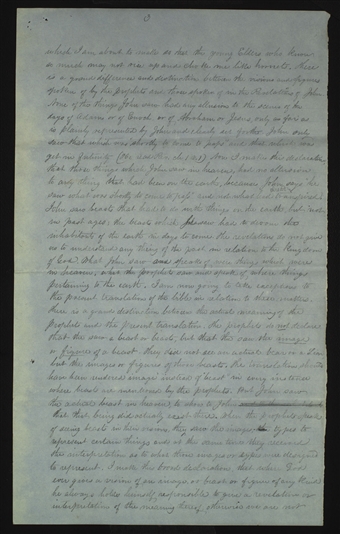 3
which I am about to make so that the young Elders who know
so much may not rise up and choke me like hornets. there
is a grand difference and distinction between the visions and figures
spoken of by the prophets and those spoken of in the Revelations of John
None of the things John saw had any allusion to the scenes of the
days of Adam or of Enoch or of Abraham or Jesus, only as far as
is plainly represented by John and clearly set forth. John only
saw that which was shortly to come to pass and that which was
yet in futurity (He read Rev. ch 1 v 1) Now I make this declaration,
that those things which John saw in heaven, had no allusion
to any thing that had been on the earth, because John says he
saw what was shortly to come to pass and not what had transpired
John saw beasts that had to do with things on the earth, but not in
past ages; the beasts which
inhabitants of the earth in days to come the revelations do not give
us to understand any thing of the past in relation to the kingdom
of God. What John saw and speaks of were things which were
in heaven, what the prophets saw and speak of where things
pertaining to the earth. I am now going to take exceptions to
the present translation of the bible in relation to these matters.
there is a grand distinction between the actual meaning of the
prophets and the present translation. the prophets do not declare
that they saw a beast or beasts, but that they saw the image
or figure of a beast. they did not see an actual bear or a Lion
but the images or figures of those beasts. the translation should
have been rendered image instead of beast in every instance
where beasts are mentioned by the prophets. But John saw
the actual beast in heaven, to show to John
that that being did actually exist there. When the prophets speak
of seeing beasts in their visions, they saw the images types to
represent certain things and at the same time they received
the interpretation as to what those images or types were designed
to represent. I make this broad declaration, that where God
ever gives a vision of an image, or beast or figure of any kind
he always holds himself responsible to give a revelation or
interpretation of the meaning thereof, otherwise we are not